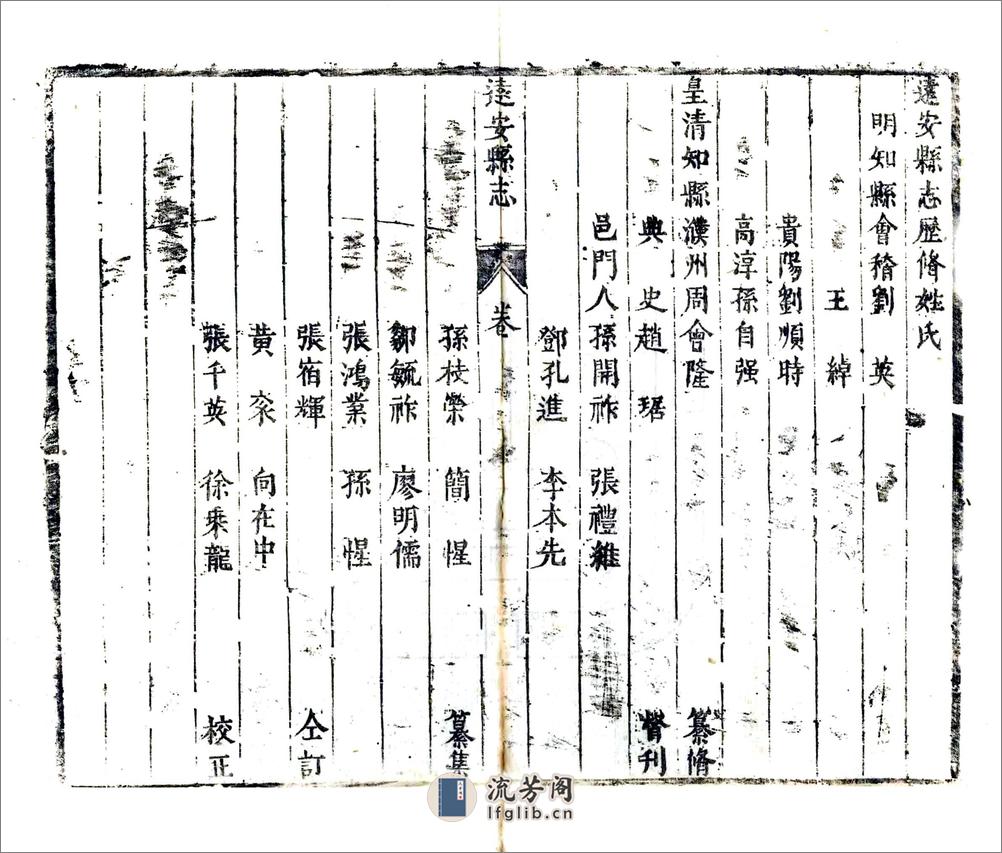 遠安縣志歷脩姓氏
明知縣會稽劉 英
王 綽
貴陽劉順時
高淳孫自强
皇清知縣濮州周會隆 纂脩
典 史趙 琚 督刊
邑門人孫開祚 張禮雒
鄧孔進 李本先
遠安縣志 卷
孫枝榮 簡 惺 纂集
鄒毓祚 廖明儒
張鴻業 孫 惺
張宿輝 仝訂
黃 衮 向在中
張千英 徐乘龍 校正
流芳阁
lfglib.cn